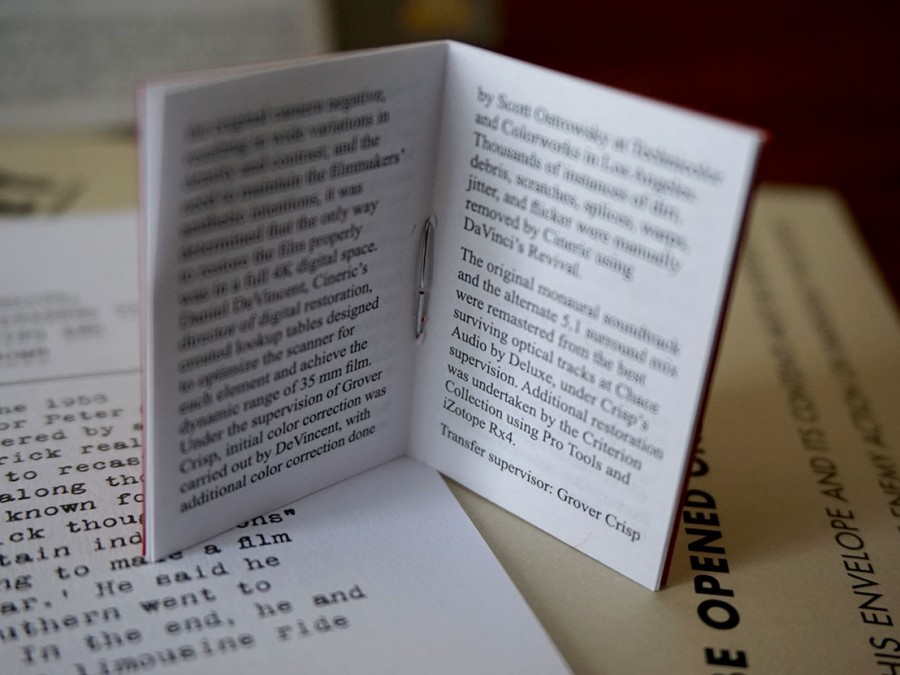 the original camera negative,
resulting in wide variations in
density and contrast; and the
need to maintain the filmmakers'
aesthetic intentions, it was
determined that the only way
to restore the film properly
was in a full 4K digital space.
Daniel DeVincent, Cineric's
director of digital restoration,
created lookup tables designed
to optimize the scanner for
each element and achieve the
dynamic range of 35 mm film.
Under the supervision of Grover
Crisp, initial color correction was
carried out by DeVincent, with
additional color correction done
by Scott Ostrowsky at Technicolor
and Colorworks in Los Angeles.
Thousands of instances of dirt,
debris, scratches, splices, warps,
jitter, and flicker were manually
removed by Cineric using
DaVinci's Revival.
The original monaural soundtrack
and the alternate 5.1 surround mix
were remastered from the best
surviving optical tracks at Chace
Audio by Deluxe, under Crisp's
supervision. Additional restoration
was undertaken by the Criterion
Collection using Pro Tools and
iZotope Rx4.
Transfer supervisor: Grover Crisp
he 1958
or Peter
ered by
rick real
to recas
along th
known fo
ick thou ons"
tain ind
ng to make a film
ar.' He said he
uthern went to
In the end, he and
limousine ride
SE OPENED
HIS ENVELOPE AND ITS
ENEMY ACTION